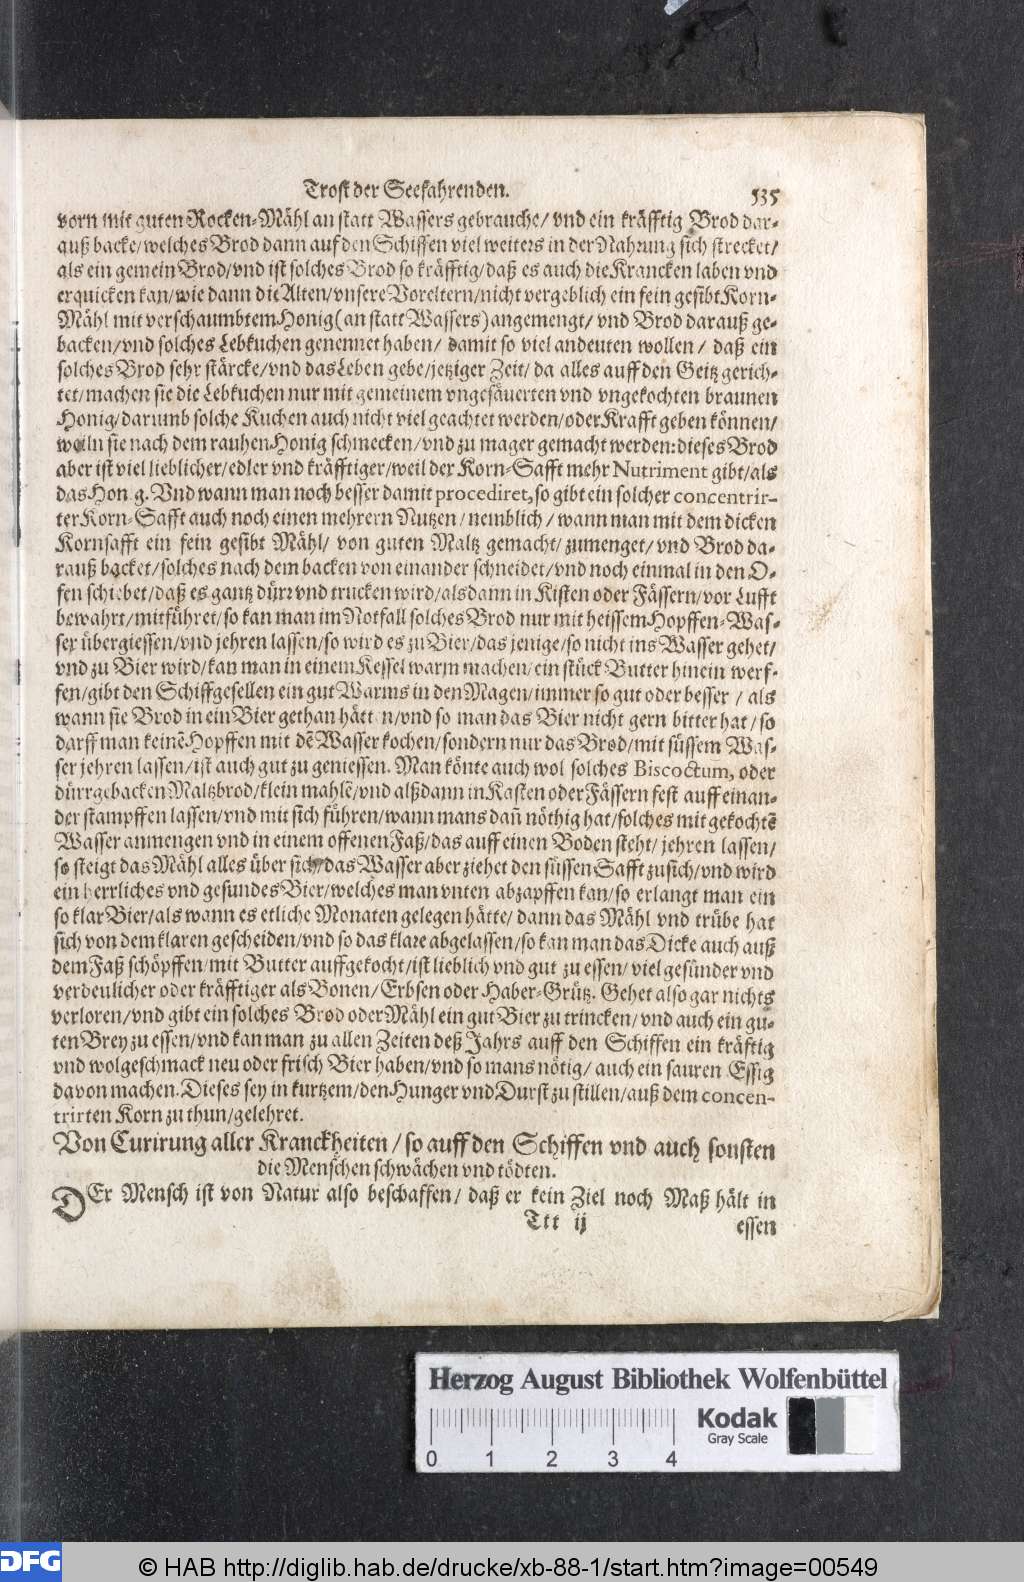 Trost der Seefahrenden. 535
vorn mit guten Rocken-Mähl an statt Wassers gebrauche/ vnd ein kräfftig Brod dar-
auß backe/welches Brod dann auf den Schiffen viel weiters in der Nahrung sich strecket/
als ein gemein Brod/vnd ist solches Brod so kräfftig/daß es auch die Krancken laben vnd
erquicken kan/wie dann die Alten/vnsere Voreltern/nicht vergeblich ein fein gesibt Korn-
Mähl mit verschaumbtem Honig (an statt Wassers) angemengt/ vnd Brod darauß ge-
backen/vnd solches Lebkuchen genennet haben/ damit so viel andeuten wollen/ daß ein
solches Brod sehr stärcke/vnd das Leben gebe/jetziger Zeit/ da alles auff den Geitz gerich-
tet/machen sie die Lebkuchen nur mit gemeinem vngesäuerten vnd vngekochten braunen
Honig/darumb solche Kuchen auch nicht viel geachtet werden/oder Krafft geben können/
weiln sie nach dem rauhen Honig schmecken/vnd zu mager gemacht werden: dieses Brod
aber ist viel lieblicher/edler vnd kräfftiger/weil der Korn-Safft mehr Nutriment gibt/als
das Hon g. Vnd wann man noch besser damit procediret, so gibt ein solcher concentrir-
ter Korn-Safft auch noch einen mehrern Nutzen/ nemblich/ wann man mit dem dicken
Kornsafft ein fein gesibt Mähl/ von guten Maltz gemacht/ zumenget/ vnd Brod da-
rauß backet/solches nach dem backen von einander schneidet/vnd noch einmal in den O-
fen schiebet/daß es gantz dürr vnd trucken wird/alsdann in Kisten oder Fässern/vor Lufft
bewahrt/mitführet/so kan man im Notfall solches Brod nur mit heissem Hopffen-Was-
ser übergiessen/vnd jehren lassen/so wird es zu Bier/das jenige/so nicht ins Wasser gehet/
vnd zu Bier wird/kan man in einem Kessel warm machen/ein stück Butter hinein werf-
fen/gibt den Schiffgesellen ein gut Warms in den Magen/immer so gut oder besser / als
wann sie Brod in ein Bier gethan hätt n/vnd so man das Bier nicht gern bitter hat/so
darff man keinē Hopffen mit dē Wasser kochen/sondern nur das Brod/mit süssem Was-
ser jehren lassen/ist auch gut zu geniessen. Man könte auch wol solches Biscoctum, oder
dürrgebacken Maltzbrod/klein mahlē/vnd alßdann in Kasten oder Fässern fest auff einan-
der stampffen lassen/vnd mit sich führen/wann mans dañ nöthig hat/solches mit gekochtē
Wasser anmengen vnd in einem offenen Faß/das auff einen Boden steht/ jehren lassen/
so steigt das Mähl alles über sich/das Wasser aber ziehet den süssen Safft zu sich/vnd wird
ein herrliches vnd gesundes Bier/welches man vnten abzapffen kan/so erlangt man ein
so klar Bier/als wann es etliche Monaten gelegen hätte/ dann das Mähl vnd trübe hat
sich von dem klaren gescheiden/vnd so das klare abgelassen/so kan man das Dicke auch auß
dem Faß schöpffen/mit Butter auffgekocht/ist lieblich vnd gut zu essen/ viel gesünder vnd
verdeulicher oder kräfftiger als Bonen/Erbsen oder Haber-Grütz. Gehet also gar nichts
verloren/vnd gibt ein solches Brod oder Mähl ein gut Bier zu trincken/ vnd auch ein gu-
ten Brey zu essen/vnd kan man zu allen Zeiten deß Jahrs auff den Schiffen ein kräftig
vnd wolgeschmack neu oder frisch Bier haben/vnd so mans nötig/ auch ein sauren Essig
davon machen. Dieses sey in kurtzem/den Hunger vnd Durst zu stillen/auß dem concen-
trirten Korn zu thun/gelehret.
Von Curirung aller Kranckheiten/ so auff den Schiffen vnd auch sonsten
die Menschen schwächen vnd tödten.
DEr Mensch ist von Natur also beschaffen/ daß er kein Ziel noch Maß hält in
Ttt ij essen
Herzog August Bibliothek Wolfenbüttel
Kodak
Gray Scale
0 1 2 3 4
DFG © HAB http://diglib.hab.de/drucke/xb-88-1/start.htm?image=00549